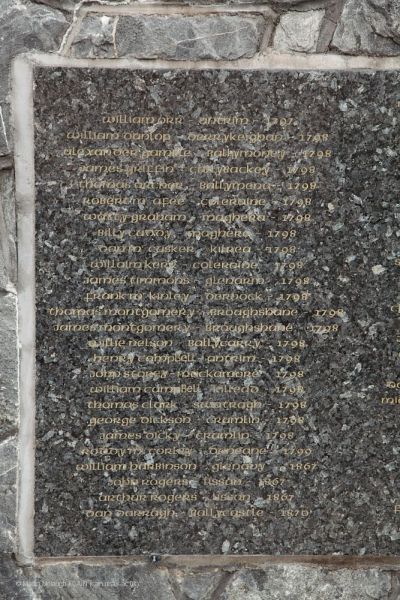 William Orr - Antrim - 1797
William Dunlop - Derrykeighan - 1798
Alexander Gamble - Ballymoney - 1798
James - Cullybackey - 1798
Thomas Archer - Ballymena - 1798
Robert M. Afee - Coleraine - 1798
Watty Graham - Maghera - 1798
Billy Cuddy - Maghera - 1798
Dan M. Cusker - Kilrea - 1798
William Kerr - Coleraine - 1798
James Timmons - Glenarm - 1798
Frank M. Kinley - Dervock - 1798
Thomas Montgomery - Broughshane - 1798
James Montgomery - Broughshane - 1798
Willie Nelson - Ballycarry - 1798
Henry Campbell - Antrim - 1798
John Storey - Muckamore - 1798
William Campbell - Kilread - 1798
Thomas Clark - Swatragh - 1798
George Dickson - Crumlin - 1798
James Dicky - Crumlin - 1798
Roddy M. Corley - Duneane - 1799
William Harbinson - Glenavy - 1867
John Rogers - Lissan - 1867
Arthur Rogers - Lissan - 1867
Dan Darragh - Ballycastle - 1870